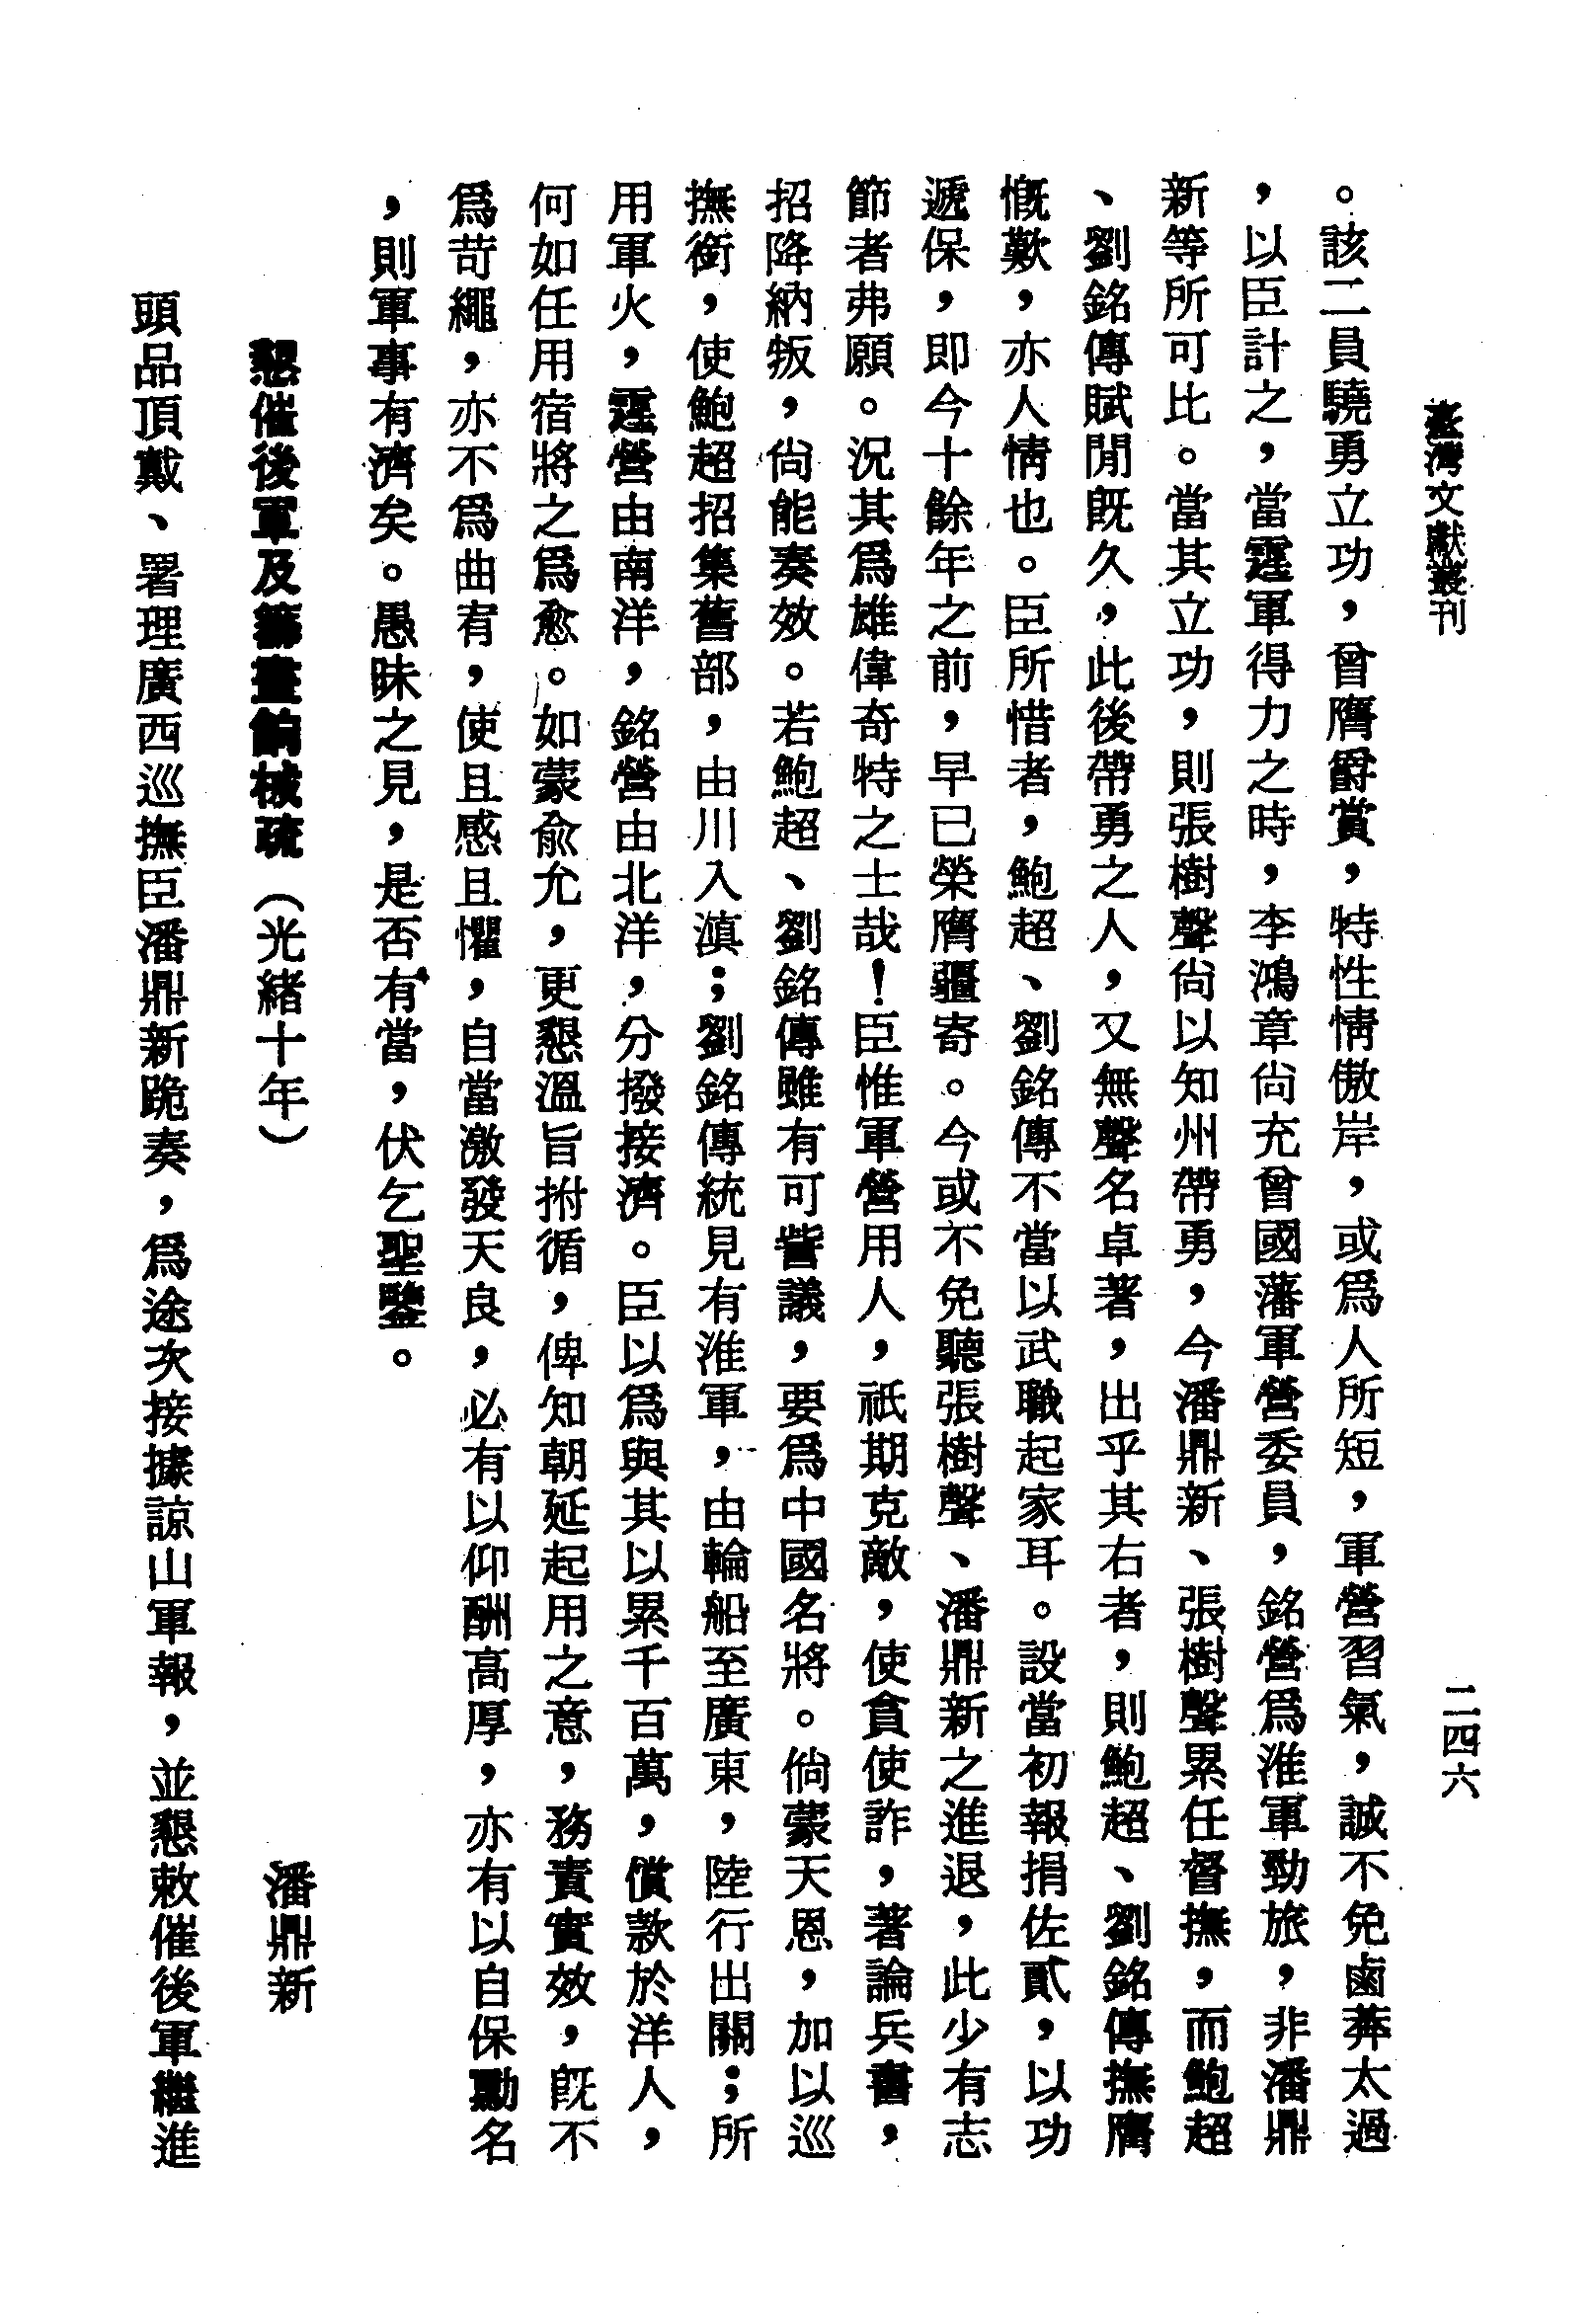 臺灣文獻叢刊
二四六
。該二員驍勇立功，曾膺爵賞，特性情傲岸，或爲人所短，軍營習氣，誠不免鹵莽太過
，以臣計之，當霆軍得力之時，李鴻章尙充曾國藩軍營委員，銘營爲淮軍勁旅，非潘鼎
新等所可比。當其立功，則張樹聲尙以知州帶勇，今潘鼎新、張樹聲累任督撫，而鮑超
、劉銘傳賦閒旣久，此後帶勇之人，又無聲名卓著，出乎其右者，則鮑超、劉銘傳撫膺
慨歎，亦人情也。臣所惜者，鮑超、劉銘傳不當以武職起家耳。設當初報捐佐貳，以功
遞保，即今十餘年之前，早已榮膺疆寄。今或不免聽張樹聲、潘鼎新之進退，此少有志
節者弗願。況其爲雄偉奇特之士哉！臣惟軍營用人，祇期克敵，使貪使詐，著論兵書，
招降納叛，尙能奏效。若鮑超、劉銘傳雖有可訾議，要爲中國名將。倘蒙天恩，加以巡
撫銜，使鮑超招集舊部，由川入滇；劉銘傳統見有淮軍，由輪船至廣東，陸行出關；所
用軍火，霆營由南洋，銘營由北洋，分撥接濟。臣以爲與其以累千百萬，償款於洋人，
何如任用宿將之爲愈。如蒙俞允，更懇溫旨拊循，俾知朝延起用之意，務責實效，旣不
爲苛繩，亦不爲曲宥，使且感且懼，自當激發天良，必有以仰酬高厚，亦有以自保勳名
，則軍事有濟矣。愚昧之見，是否有當，伏乞聖鑒。
懇催後軍及籌畫餉械疏（光緒十年）
潘鼎新
頭品頂戴、署理廣西巡撫臣潘鼎新跪奏，爲途次接據諒山軍報，並懇敕催後軍繼進